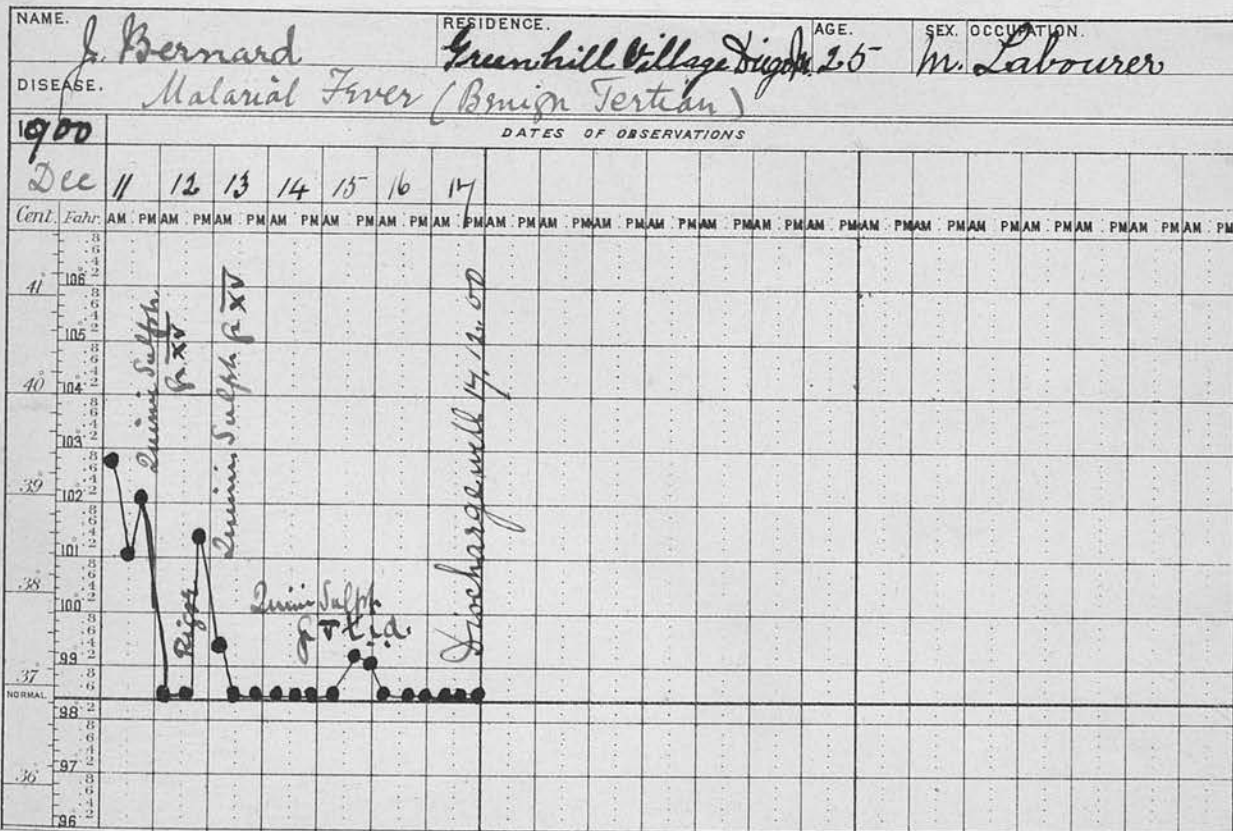 NAME. RESIDENCE. AGE. SEX. OCCUPATION.
J. Bernard Greenhill Village 25 M. Labourer
DISEASE. Malarial Fever (Benign Tertian)
1900 DATES OF OBSERVATIONS
Dec 11 12 13 14 15 16 17
Cent. Fahr. AM PM AM PM AM PM AM PM AM PM AM PM AM PM AM PM AM PM AM PM AM PM AM PM AM PM AM PM AM PM AM PM AM PM AM PM AM PM AM PM AM PM
41° 106°
105°
40° 104°
103°
39° 102°
101°
38° 100°
99°
37
NORMAL
98
97
36
96
Quinin Sulph.
gr XV
Quinin Sulph gr XV
Rigor
Quinin Sulph
gr V t.i.d.
Discharge well 17.12.00